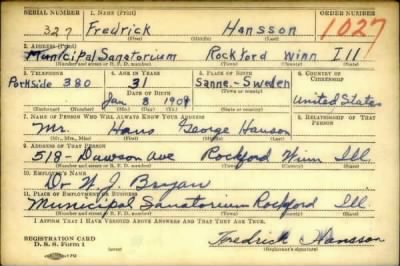 SERIAL NUMBER 1. NAME (Print) ORDER NUMBER
327 Fredrick Hansson 1027
(First) (Middle) (Last)
2. ADDRESS (Print)
Municipal Sanatorium Rockford Winn Ill
(Number and street or R. F. D. number) (Town) (County) (State)
3. TELEPHONE 4. AGE IN YEARS 5. PLACE OF BIRTH 6. COUNTRY OF CITIZENSHIP
Parkside 380 31 Sanne-Sweden
DATE OF BIRTH
Jan 8 1909 United States
(Exchange) (Number) (Mo.) (Day) (Yr.) (State or country)
7. NAME OF PERSON WHO WILL ALWAYS KNOW YOUR ADDRESS 8. RELATIONSHIP OF THAT PERSON
Mr. Hans George Hanson
(Mr., Mrs., Miss) (First) (Middle) (Last)
9. ADDRESS OF THAT PERSON
519- Dawson ave Rockford Winn Ill.
(Number and street or R. F. D. number) (Town) (County) (State)
10. EMPLOYER'S NAME
Dr W. J. Bryan
11. PLACE OF EMPLOYMENT OR BUSINESS
Municipal Sanatorium Rockford Ill.
(Number and street or R. F. D. number) (Town) (County) (State)
I AFFIRM THAT I HAVE VERIFIED ABOVE ANSWERS AND THAT THEY ARE TRUE.
REGISTRATION CARD
D. S. S. Form 1 Fredrick Hansson
(Registrant's signature)